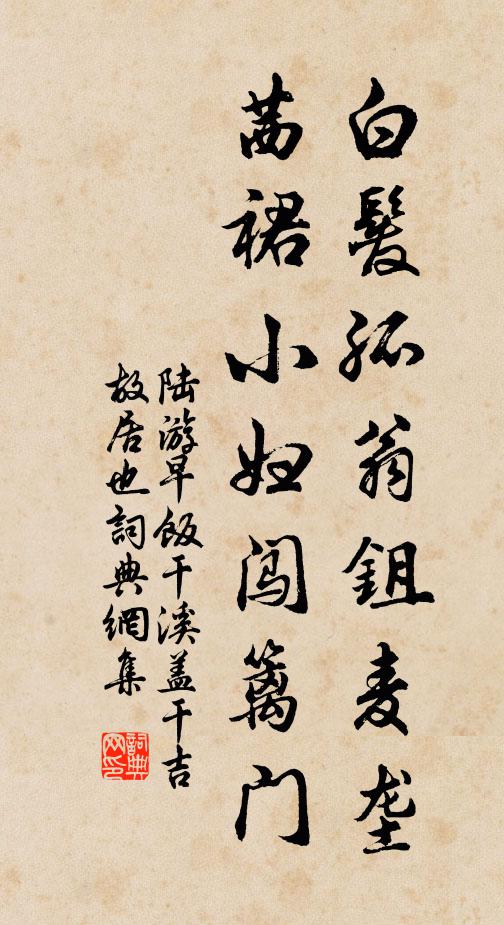 白髮孤翁鉏麦垄
茜裙小妇闯篱门
陆游早饭干溪盖干吉
故居也詞典網集
詞典網印